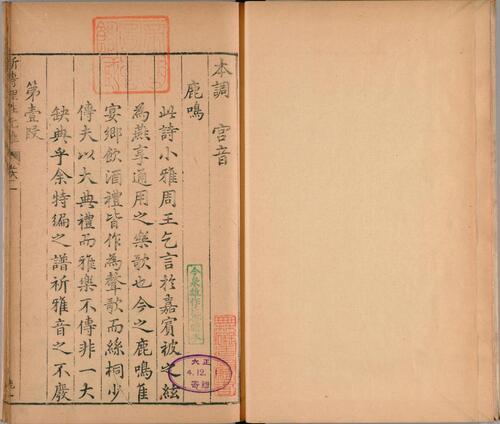 本調 宮音
鹿鳴
此詩小雅周王乞言於嘉賓被之絃
為燕享通用之樂歌也今之鹿鳴隹
宴鄉飲酒禮皆作為聲歌而絲桐少
傳夫以大典禮而雅樂不傳非一大
缺典乎余特編之譜祈雅音之不廢
第壹段
大正
4.12.
寄贈